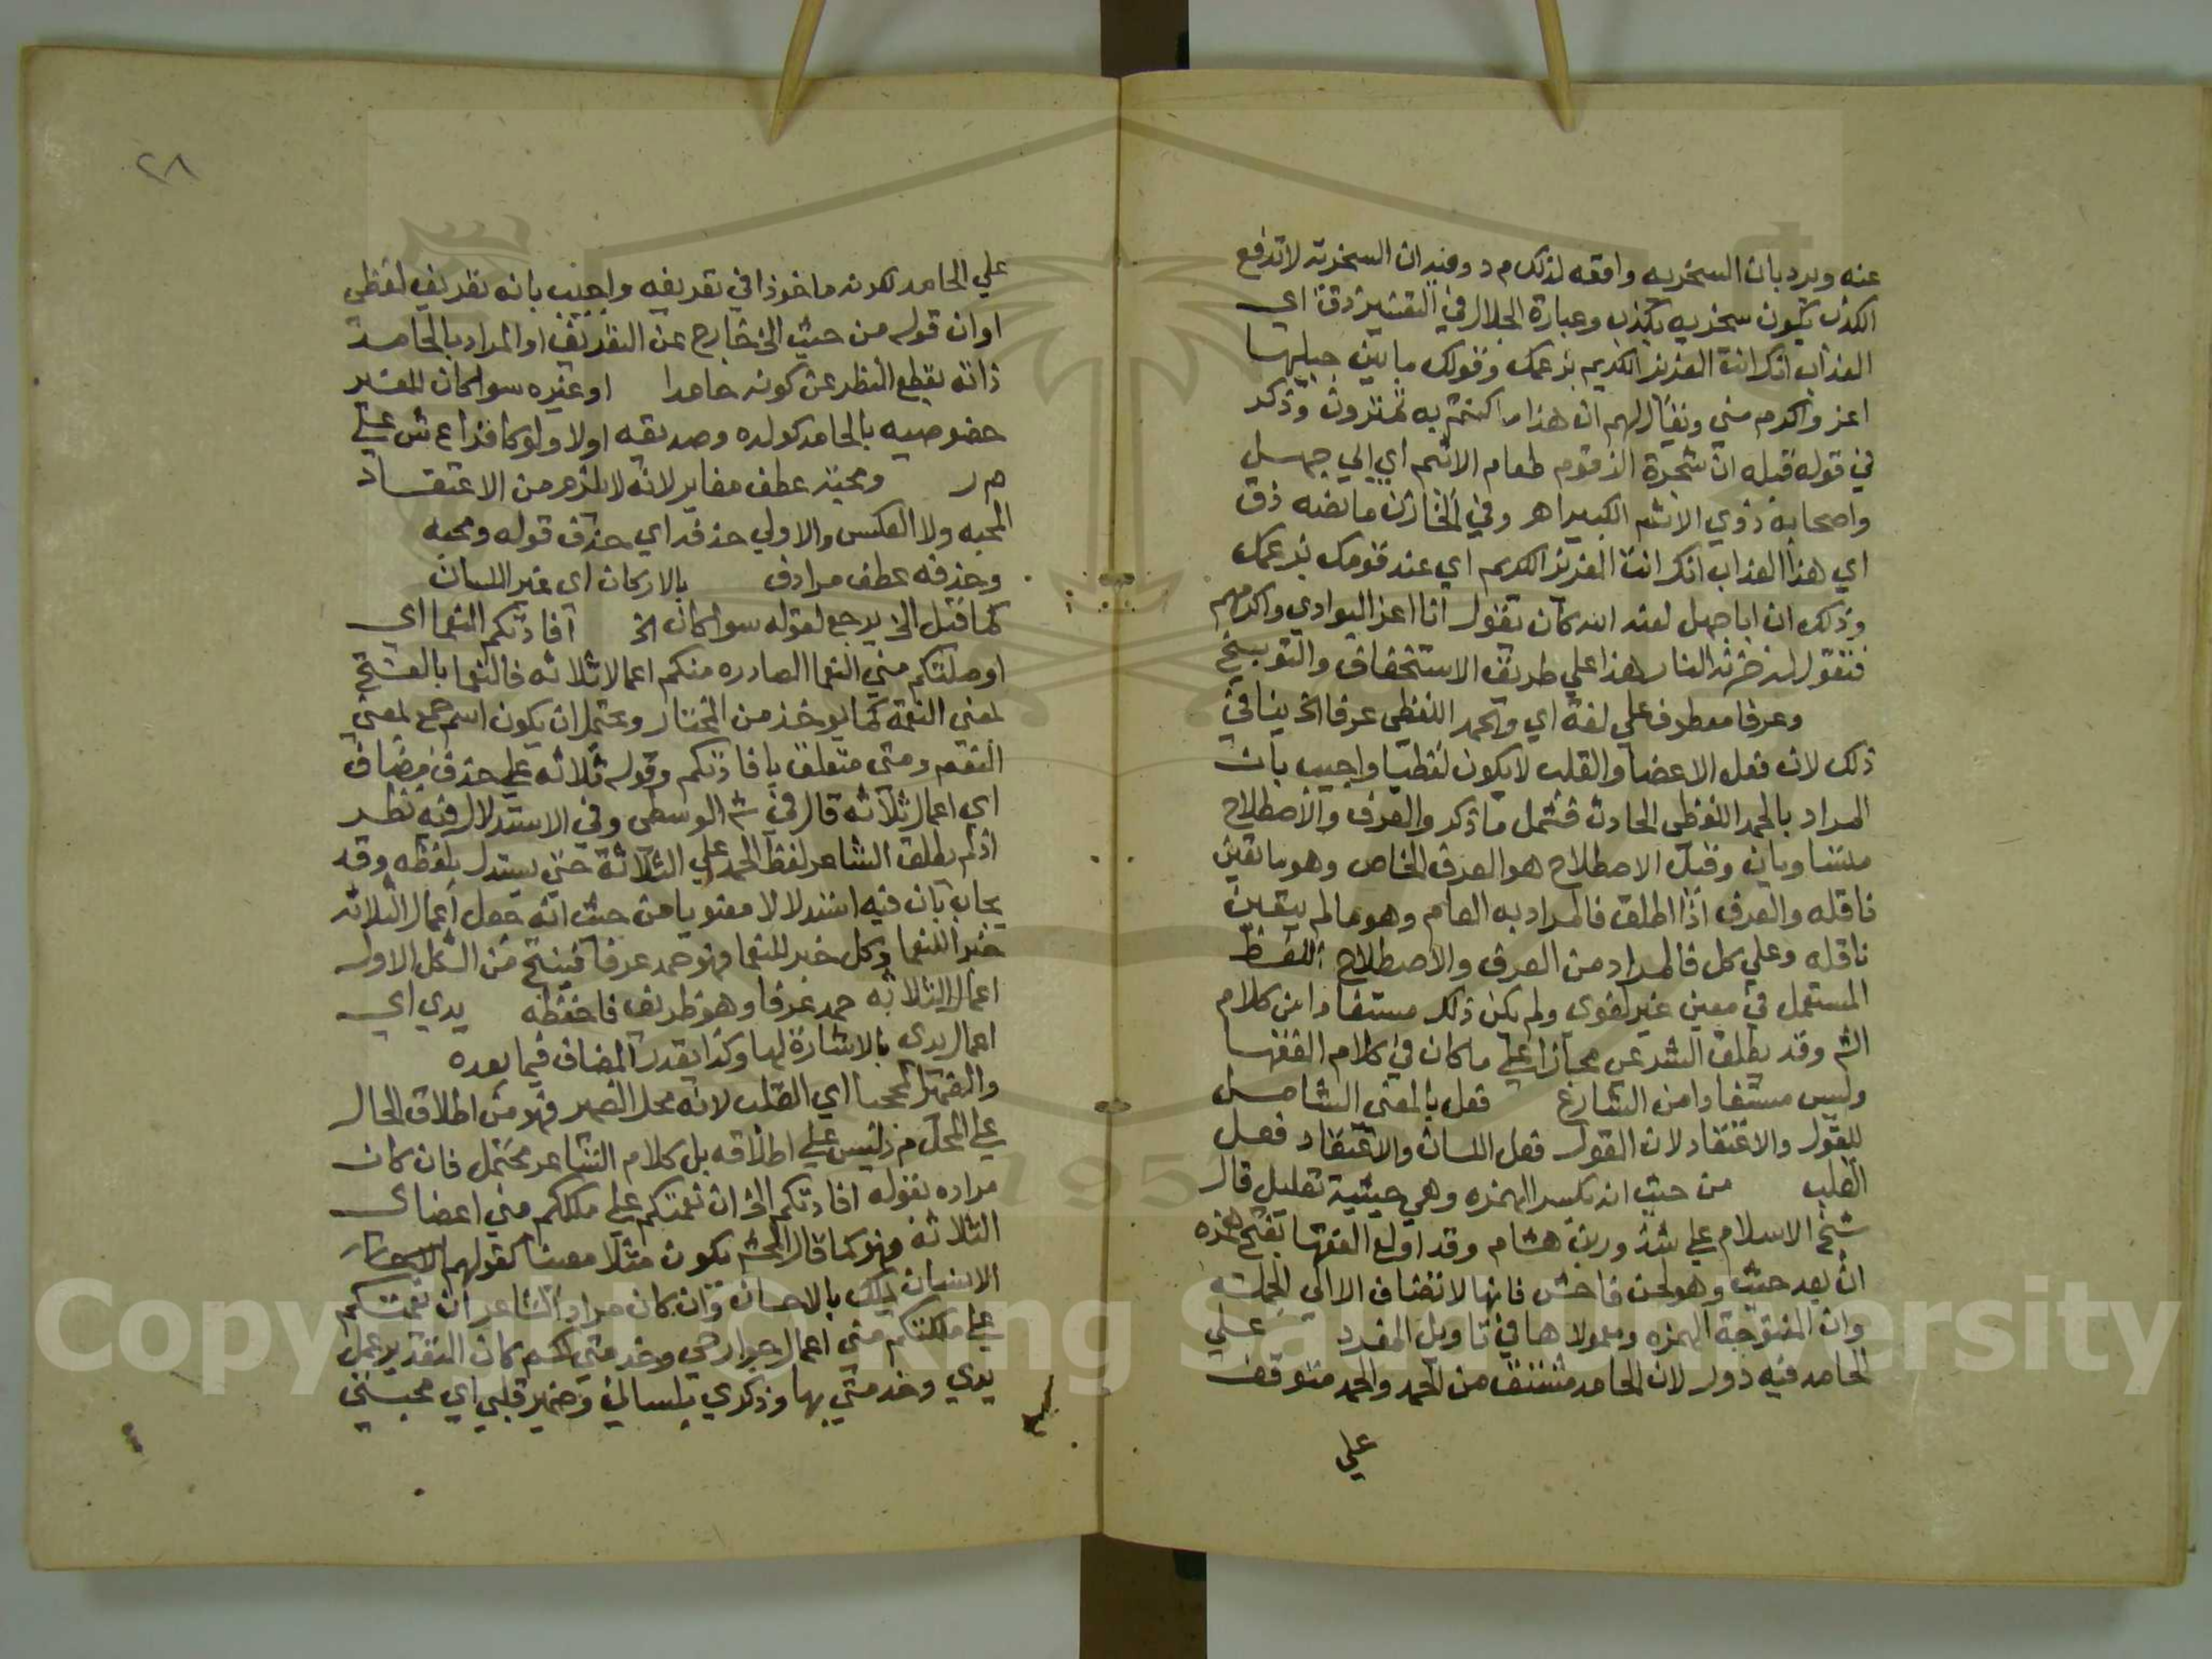 عنه ويرد بان السخريه واقعه لذلك م د وفيه ان السخرية لا تدفع
الكذب بكون سخريه بكذب وعبارة الجلال في التفسير ذق اي
العذاب انك انت العزيز الكريم بزعمك وقولك ما بين جبليها
اعز واكرم مني ويقال لهم ان هذا ما كنتم به تمترون وذكر
في قوله قبله ان شجرة الزقوم طعام الاثيم اي ابي جهل
واصحابه ذوي الاثم الكبير اهر وفي الخازن ما نصه ذق
اي هذا العذاب انك انت العزيز الكريم اي عند قومك بزعمك
وذلك ان ابا جهل لعنه الله كان يقول انا اعز الوادي واكرمهم
فتقول له خزنة النار هذا علي طريق الاستخفاف والتوبيخ
وعرفا معطوف علي لغة اي والحمد اللفظي عرفا الخ ينافي
ذلك لان فعل الاعضا والقلب لا يكون لفظيا واجيب بان
المراد بالحمد اللفظي الحادث فشمل ما ذكر والعرف والاصطلاح
متساويان وقيل الاصطلاح هو العرف الخاص وهو ما تعين
ناقله والعرف اذا اطلق فالمراد به العام وهو ما لم يتعين
ناقله وعلي كل فالمراد من العرف والاصطلاح اللفظ
المستعمل في معني غير لغوي ولم يكن ذلك مستفادا من كلام
الش وقد يطلق الشرعي مجازا علي ما كان في كلام الفقها
وليس مستفادا من الشارع فعل بالمعني الشامل
للقول والاعتقاد لان القول فعل اللسان والاعتقاد فعل
القلب من حيث انه بكسر الهمزه وهي حيثية تعليل قال
شيخ الاسلام علي شذور بن هشام وقد اولع الفقها بفتح همزه
ان بعد حيث وهو لحن فاحش فانها لا تضاف الا الي الجملة
وان المفتوحة الهمزه ومعمولاها في تاويل المفرد علي
الحامد فيه دور لان الحامد مشتق من الحمد والحمد متوقف
علي
٢٨
علي الحامد لكونه ماخوذا في تعريفه واجيب بانه تعريف لفظي
او ان قوله من حيث الخ خارج عن التعريف او المراد بالحامد
ذاته بقطع النظر عن كونه حامدا او غيره سوا كان للغير
خصوصيه بالحامد كولده وصديقه اولا ولو كافرا ع ش علي
م ر ومحبة عطف مغاير لانه لا يلزم من الاعتقاد
المحبه ولا العكس والاولي حذفه اي حذف قوله ومحبه
وحذفه عطف مرادف بالاركان اي غير اللسان
كما قيل الخ يرجع لقوله سوا كان الخ افادتكم النعما اي
اوصلتكم مني النعما الصادره منكم اعمالا ثلاثه فالنعما بالفتح
بمعني النعمة كما يوخذ من المختار ويحتمل ان يكون اسم جمع بمعني
النعم ومني متعلق بافادتكم وقوله ثلاثه علي حذف مضاف
اي اعمال ثلاثه قال في ش الوسطي وفي الاستدلال فيه نظر
اذ لم يطلق الشاعر لفظ الحمد علي الثلاثة حتي يستدل بلفظه وقد
يجاب بان فيه استدلالا معنويا من حيث انه جعل اعمال الثلاثه
خبرا للنعما وكل خبر للنعما فهو حمد عرفا فينتج من الشكل الاول
اعمال الثلاثه حمد عرفا وهو ظريف فاحفظه يدي اي
اعمال يدي بالاشارة لها وكذا يقدر المضاف فيما بعده
والضمير المحجبا اي القلب لانه محل الضمير فهو من اطلاق الحال
علي المحل م د ليس علي اطلاقه بل كلام الشاعر محتمل فان كان
مراده بقوله افادتكم الخ ان نعمتكم علي ملككم مني اعضاي
الثلاثه فهو كما قال المحش يكون مثلا معينا كقولهم
الانسان يملك بالاحسان وان كان مراد الشاعر ان نعمتكم
علي ملكتكم مني اعمال جوارحي وخدمتي لكم كان التقدير عمل
يدي وخدمتي بها وذكري بلساني وضمير قلبي اي محبتي